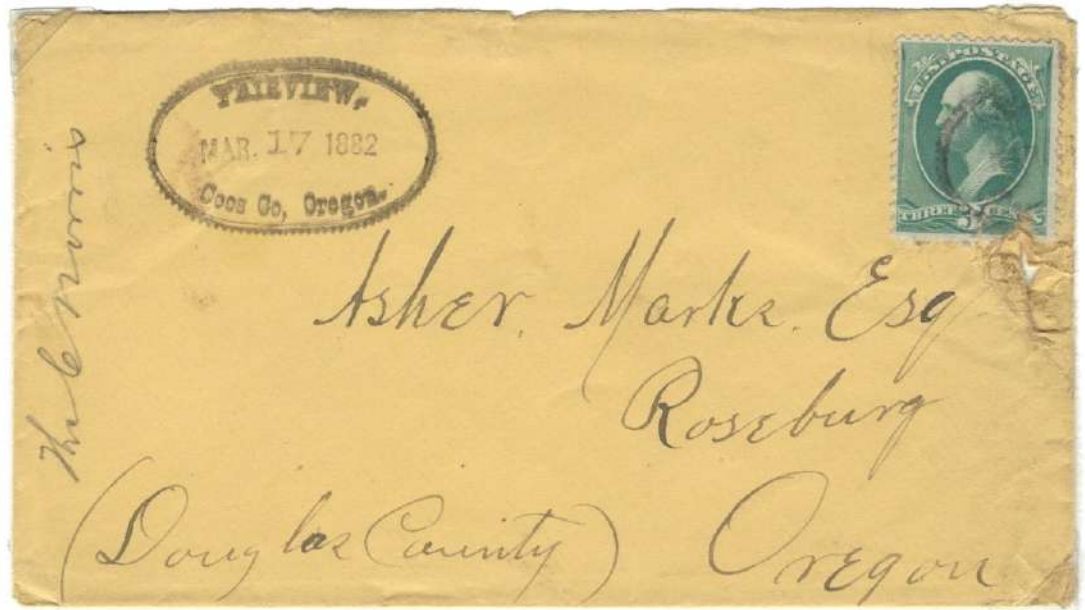 FAIRVIEW,
MAR. 17 1882
Coos Co, Oregon.
U.S. POSTAGE
THREE 3 CENTS
Asher. Marks. Esq
Roseburg
(Douglas County) Oregon